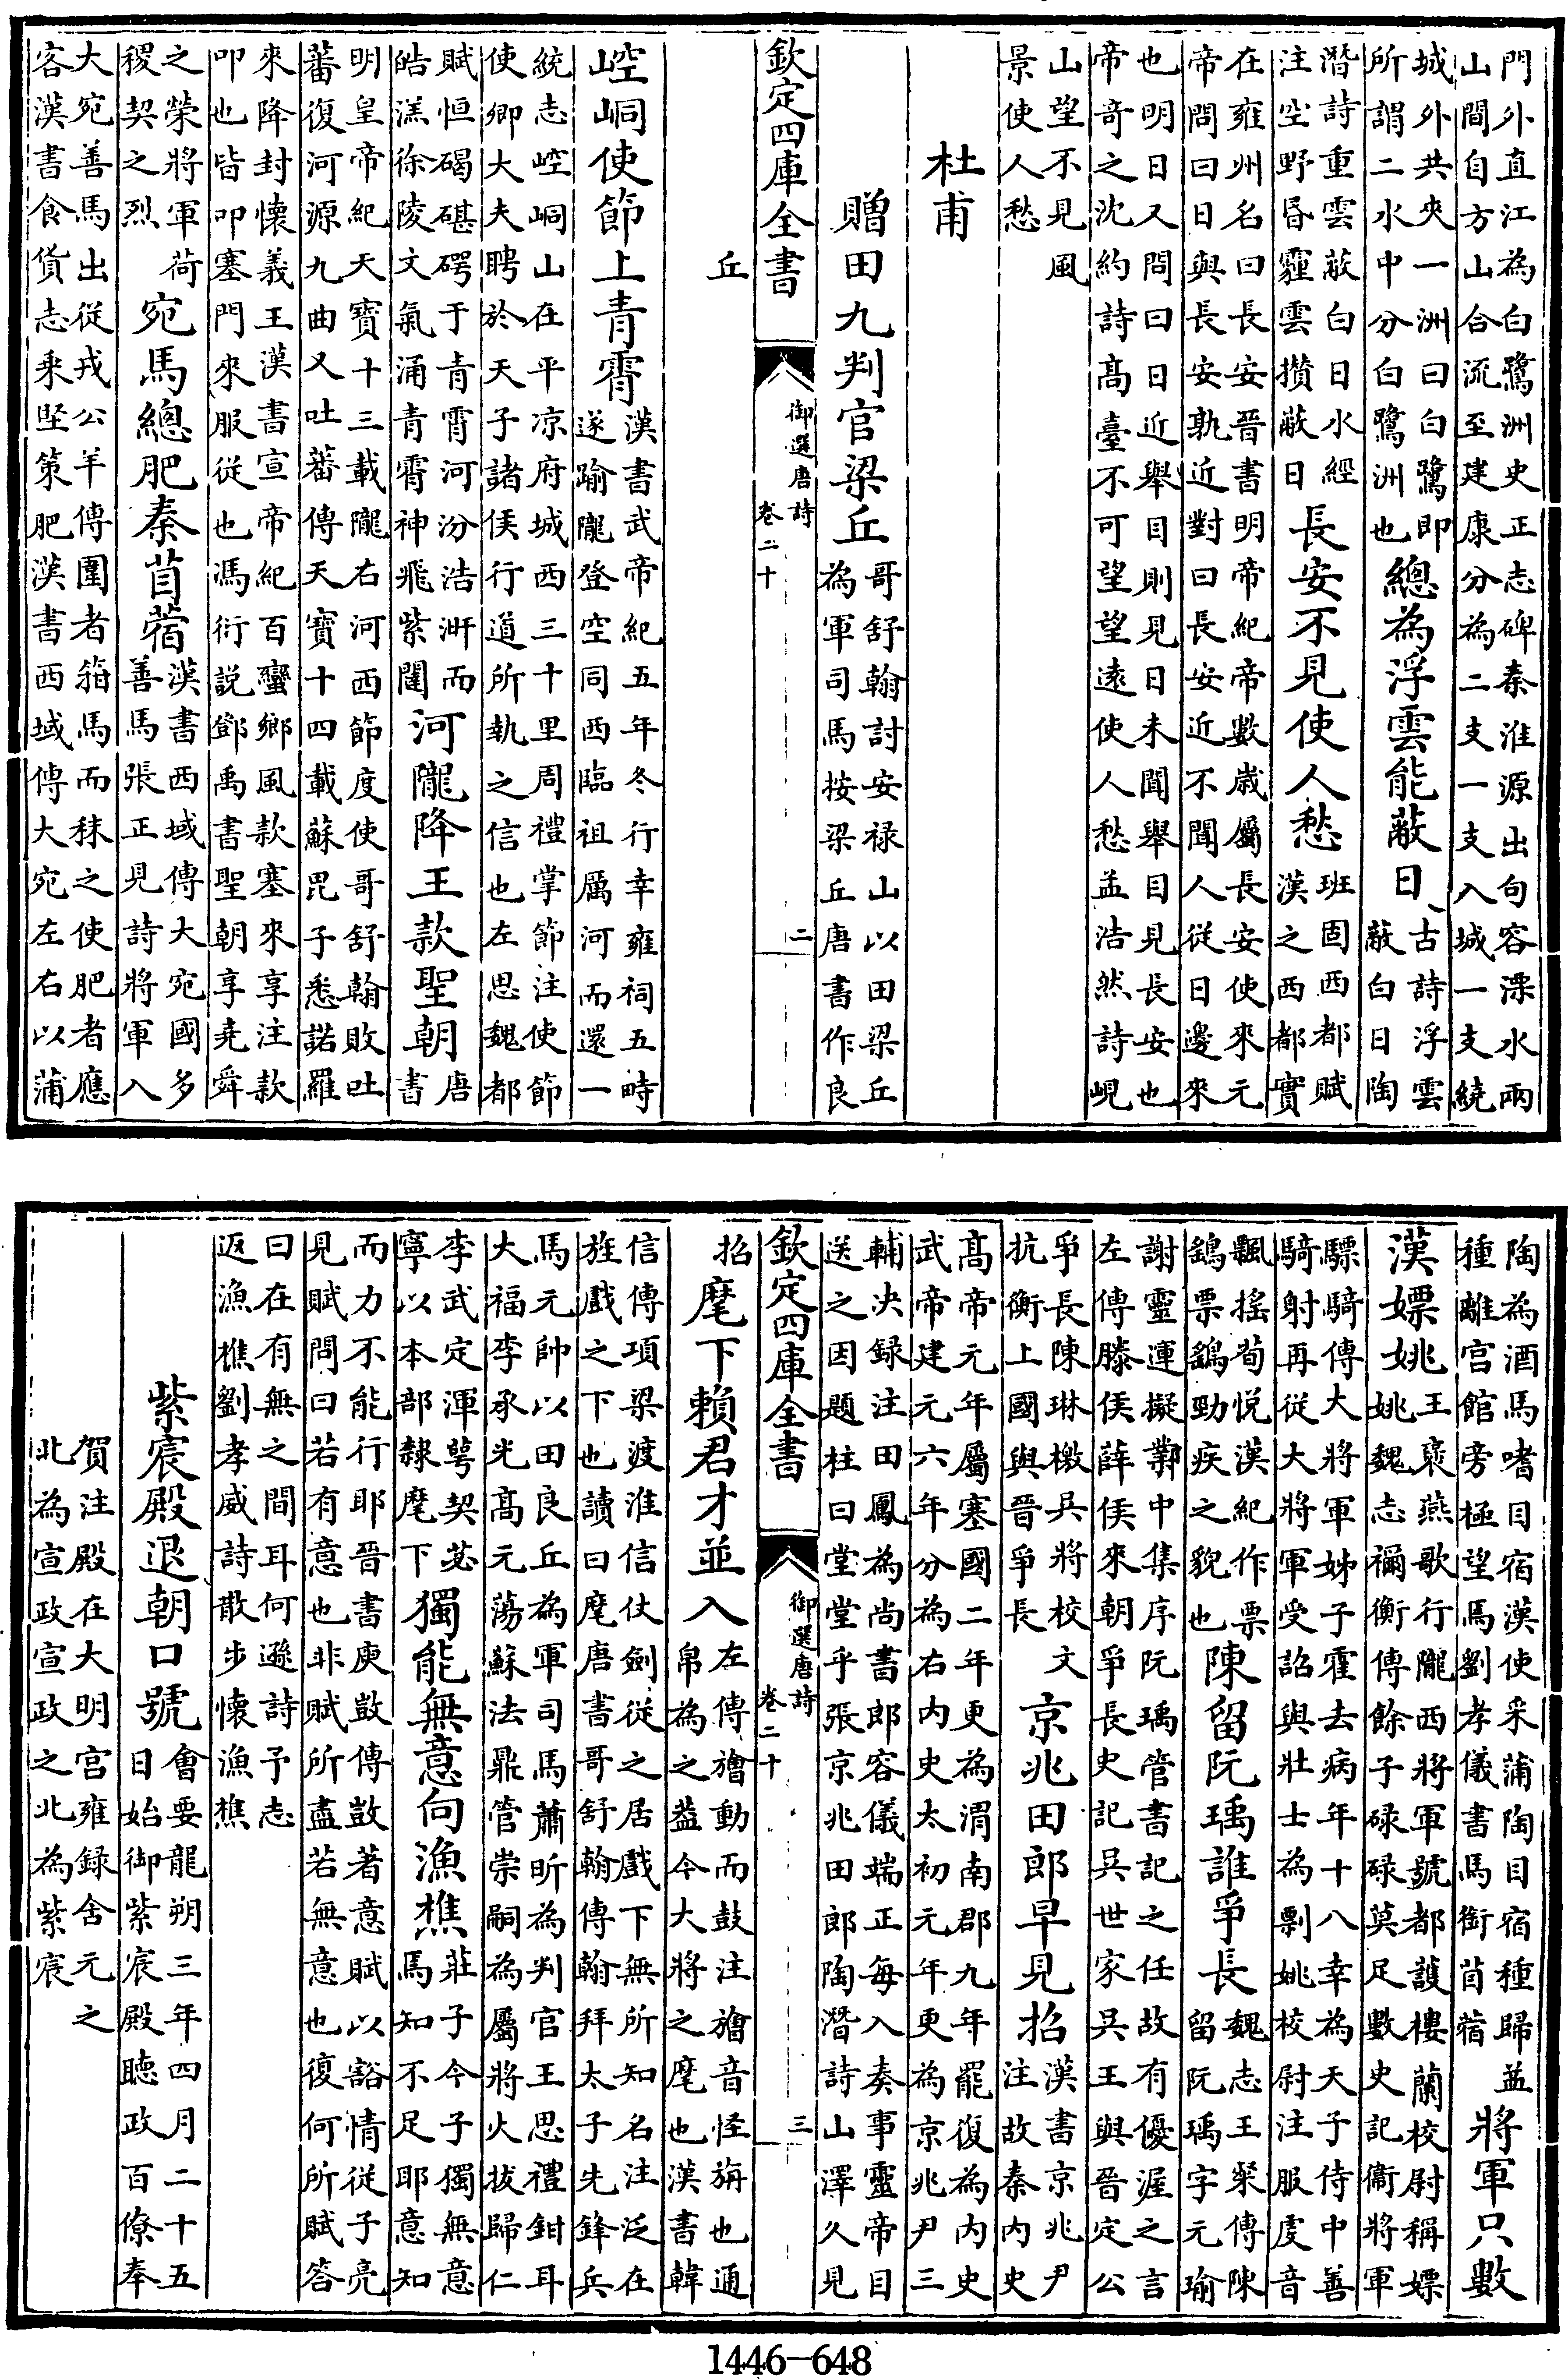 門外直江為白鷺洲史正志碑秦淮源出句容溧水兩
山間自方山合流至建康分為二支一支入城一支繞
城外共夾一洲曰白鷺即
所謂二水中分白鷺洲也
總為浮雲能蔽日
古詩浮雲
蔽白日陶
潛詩重雲蔽白日水經
注空野昏霾雲攢蔽日
長安不見使人愁
班固西都賦
漢之西都實
在雍州名曰長安晉書明帝紀帝數歲屬長安使來元
帝問曰日與長安孰近對曰長安近不聞人從日邊來
也明日又問曰日近舉目則見日未聞舉目見長安也
帝奇之沈約詩高臺不可望望遠使人愁孟浩然詩峴
山望不見風
景使人愁
杜甫
贈田九判官梁丘
哥舒翰討安禄山以田梁丘
為軍司馬按梁丘唐書作良
欽定四庫全書
御選唐詩
卷二十
二
丘
崆峒使節上青霄
漢書武帝紀五年冬行幸雍祠五畤
遂踰隴登空同西臨祖厲河而還一
統志崆峒山在平凉府城西三十里周禮掌節注使節
使卿大夫聘於天子諸侯行道所執之信也左思魏都
賦恒碣碪䃁于青霄河汾浩涆而
皓溔徐陵文氣涌青霄神飛紫闥
河隴降王款聖朝
唐
書
明皇帝紀天寶十三載隴右河西節度使哥舒翰敗吐
蕃復河源九曲又吐蕃傳天寶十四載蘇毘子悉諾羅
來降封懷義王漢書宣帝紀百蠻鄉風款塞來享注款
叩也皆叩塞門來服從也馮衍説鄧禹書聖朝享堯舜
之榮將軍荷
稷契之烈
宛馬總肥秦苜蓿
漢書西域傳大宛國多
善馬張正見詩將軍入
大宛善馬出從戎公羊傳圍者箝馬而秣之使肥者應
客漢書食貨志乘堅策肥漢書西域傳大宛左右以蒲
陶為酒馬嗜目宿漢使采蒲陶目宿種歸益
種離宫館旁極望馬劉孝儀書馬銜苜蓿
將軍只數
漢嫖姚
王褒燕歌行隴西將軍號都護樓蘭校尉稱嫖
姚魏志禰衡傳餘子碌碌莫足數史記衞將軍
驃騎傳大將軍姊子霍去病年十八幸為天子侍中善
騎射再從大將軍受詔與壯士為剽姚校尉注服虔音
飄摇荀悦漢紀作票
鷂票鷂勁疾之貌也
陳留阮瑀誰爭長
魏志王粲傳陳
留阮瑀字元瑜
謝靈運擬鄴中集序阮瑀管書記之任故有優渥之言
左傳滕侯薛侯來朝爭長史記吳世家吳王與晉定公
爭長陳琳檄吳將校文
抗衡上國與晉爭長
京兆田郎早見招
漢書京兆尹
注故秦内史
高帝元年屬塞國二年更為渭南郡九年罷復為内史
武帝建元六年分為右内史太初元年更為京兆尹三
輔决録注田鳳為尚書郎容儀端正每入奏事靈帝目
送之因題柱曰堂堂乎張京兆田郎陶潛詩山澤久見
欽定四庫全書
御選唐詩
卷二十
三
招
麾下賴君才並入
左傳旝動而鼓注旝音怪旃也通
帛為之葢今大將之麾也漢書韓
信傳項梁渡淮信仗劍從之居戲下無所知名注泛在
旌戲之下也讀曰麾唐書哥舒翰傳翰拜太子先鋒兵
馬元帥以田良丘為軍司馬蕭昕為判官王思禮鉗耳
大福李承光高元蕩蘇法鼎管崇嗣為屬將火拔歸仁
李武定渾萼契苾
寧以本部隸麾下
獨能無意向漁樵
莊子今子獨無意
馬知不足耶意知
而力不能行耶晉書庾敳傳敳著意賦以豁情從子亮
見賦問曰若有意也非賦所盡若無意也復何所賦答
曰在有無之間耳何遜詩予志
返漁樵劉孝威詩散步懷漁樵
紫宸殿退朝口號
會要龍朔三年四月二十五
日始御紫宸殿聽政百僚奉
賀注殿在大明宫雍録含元之
北為宣政宣政之北為紫宸
1446—648